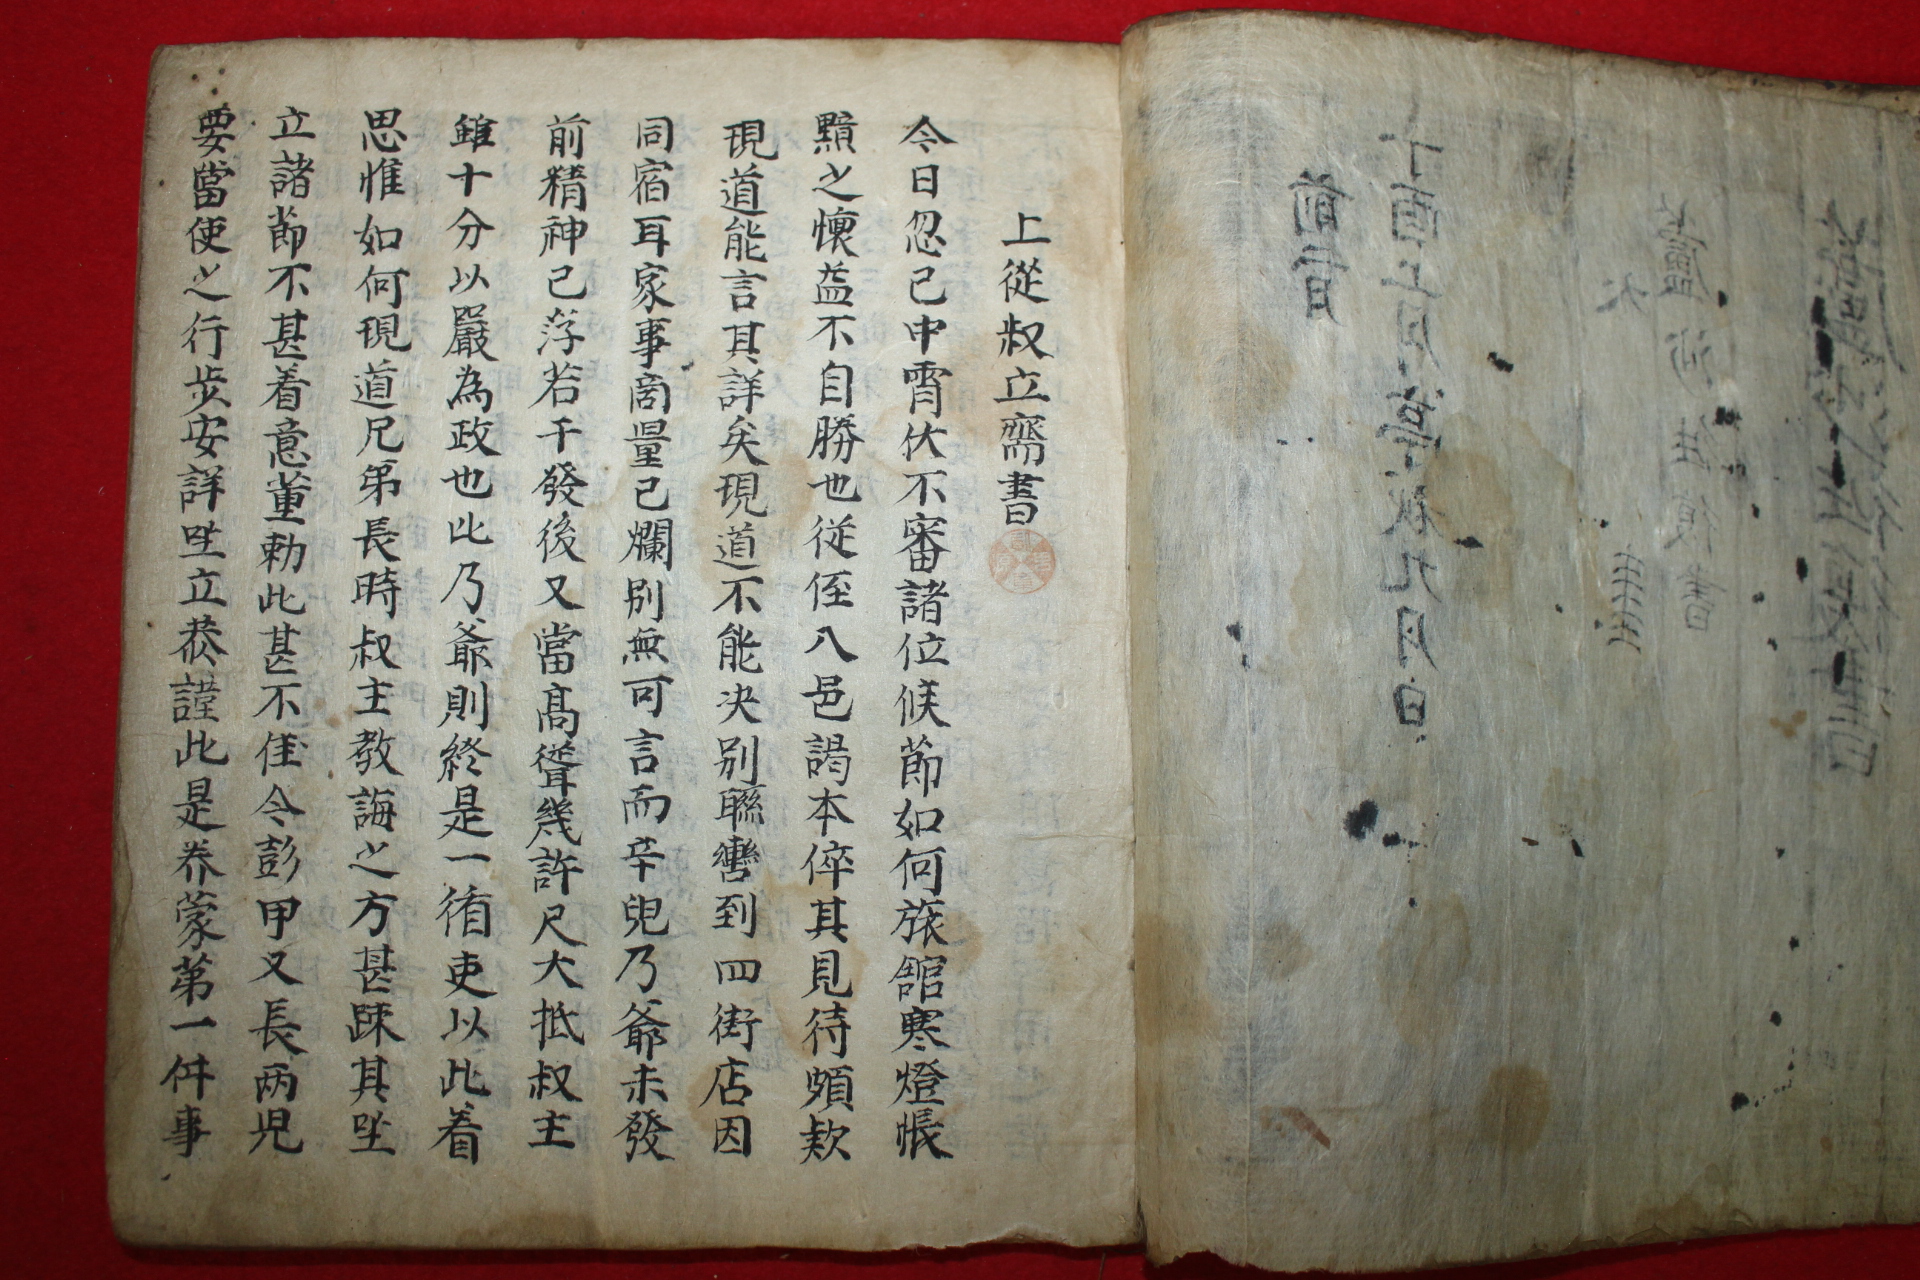 上從叔立齋書
今日忽已中霄伏不審諸位候節如何旅舘寒燈悵
黯之懷益不自勝也從侄八邑謁本倅其見待頗欵
現道能言其詳矣現道不能決别聯轡到四街店因
同宿耳家事商量已爛别無可言而辛兒乃爺未發
前精神已浮若干發後又當高聳幾許尺大抵叔主
雖十分以嚴為政也此乃爺則終是一循吏以此着
思惟如何現道兄弟長時叔主教誨之方甚踈其坐
立諸節不甚着意董勑此甚不佳令彭甲又長兩兒
要當使之行步安詳坐立恭謹此是养蒙第一件事